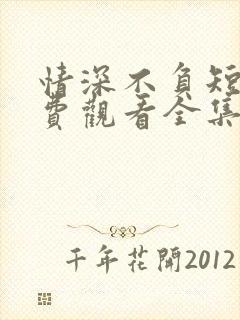 情深不負短
費觀看全集
千年花開2012